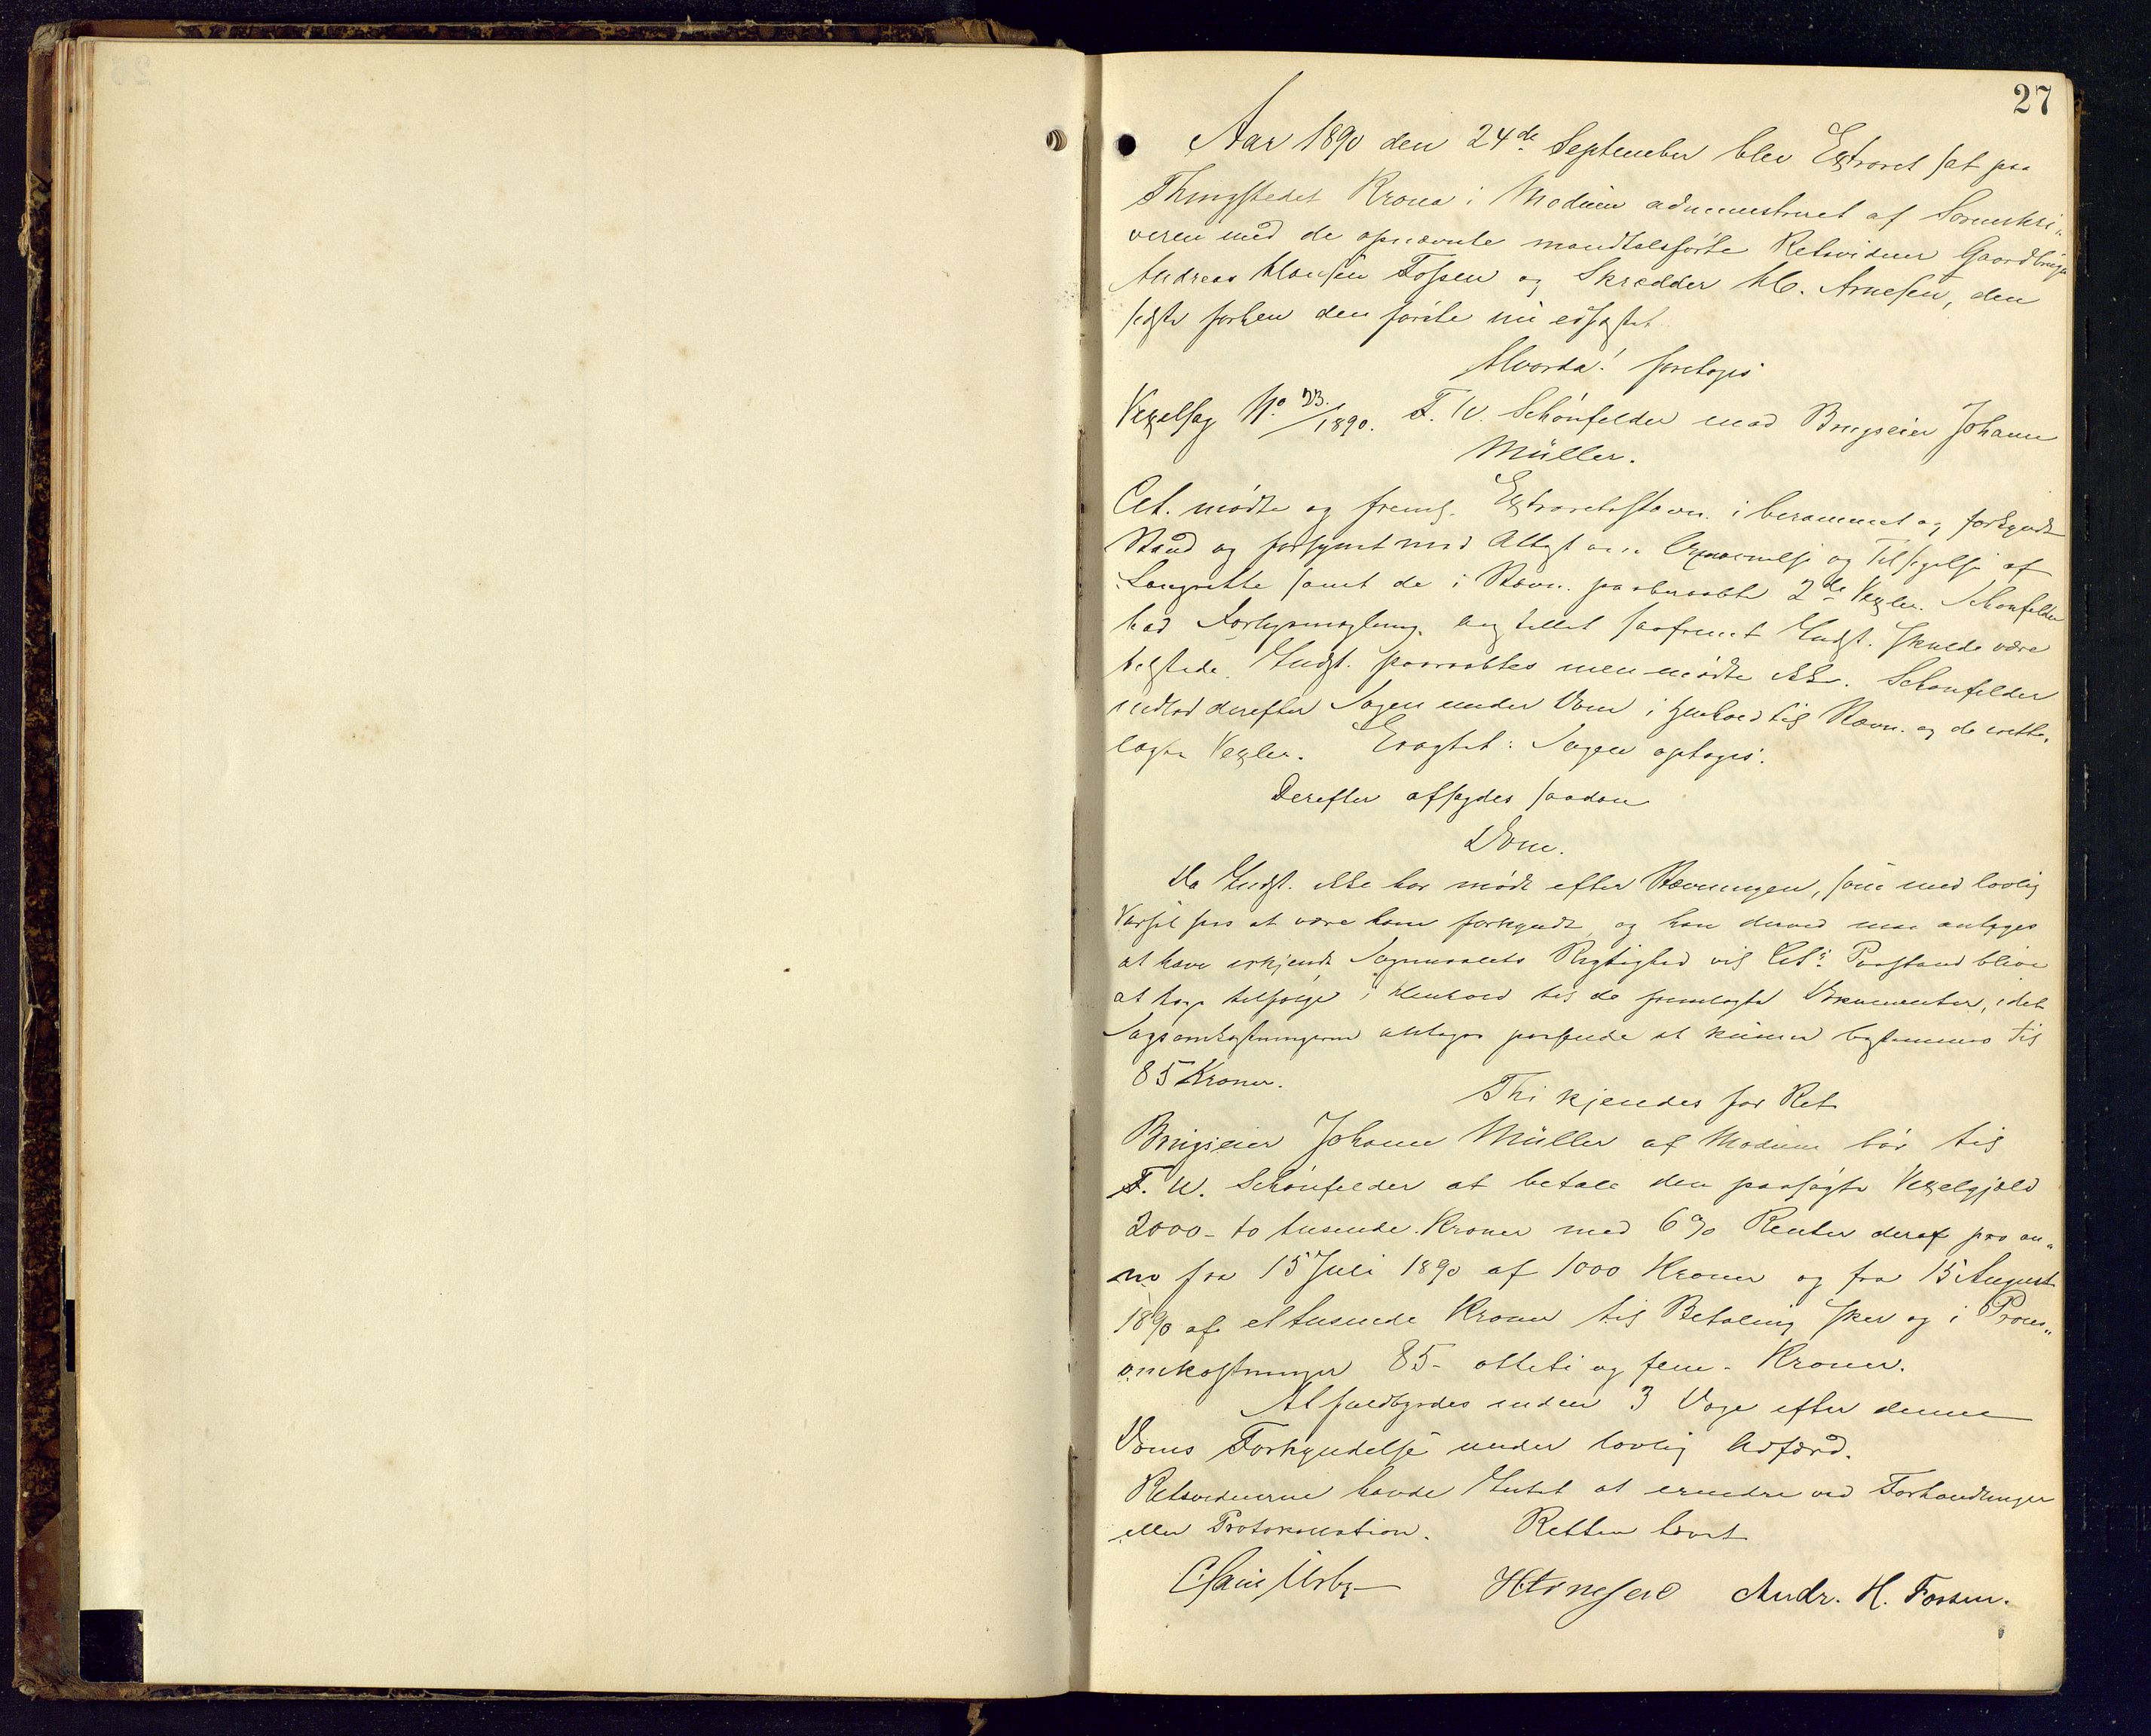 27
Aar 1890 den 24de September blev Extraret sat paa
Thingstedet Krona i Modum administreret af Sorenskri-
veren med de opnævnte mandtalsførte Retsvidner Gaardbruger
Andreas Hansen Fossen og Skrædder H. Arnesen, den
sidste forhen den første nu edfæstet.
Hvorda! foretoges
Vexelsag No 23/1890. F. W. Schönfelder mod Brugseier Johann
Müller.
Cit. mødte og freml. Extraretsstævn. i berammet og forkyndt
Stand og forsynet med Attest om Opnævnelse og Tilsigelse af
Laugrette samt de i Stævn. paaberaabte 2de Vexler. Schönfelder
bad Forligsmægling anstillet saafremt Indst. skulde være
tilstede. Indst. paaraabtes men mødte ikke. Schönfelder
indlod derefter Sagen under Dom i Henhold til Stævn. og de irette-
lagte Vexler. Eragtet: Sagen optages.
Derefter afsagdes saadan
Dom.
Da Indst. ikke har mødt efter Stævningen, som med lovlig
Varsel sees at være ham forkyndt, og han derved maa antages
at have erkjendt Søgsmaalets Rigtighed vil Cit's Paastand blive
at tage tilfølge i Henhold til de fremlagte Dokumenter, idet
Sagsomkostningerne antages passende at kunne bestemmes til
85 Kroner.
Thi kjendes for Ret
Brugseier Johann Müller af Modum bør til
F. W. Schönfelder at betale den paasøgte Vexelgjæld
2000 - to tusende Kroner med 6 % Renter deraf pro an-
no fra 15 Juli 1890 af 1000 Kroner og fra 15 August
1890 af et tusende Kroner til Betaling sker og i Proces-
omkostninger 85 - otteti og fem - Kroner.
At fuldbyrdes inden 3 Dage efter denne
Doms Forkyndelse under lovlig Adfærd.
Retsvidnerne havde Intet at erindre ved Forhandlingen
eller Protokollation. Retten hævet
H Arnesen Andr. H. Fossen.